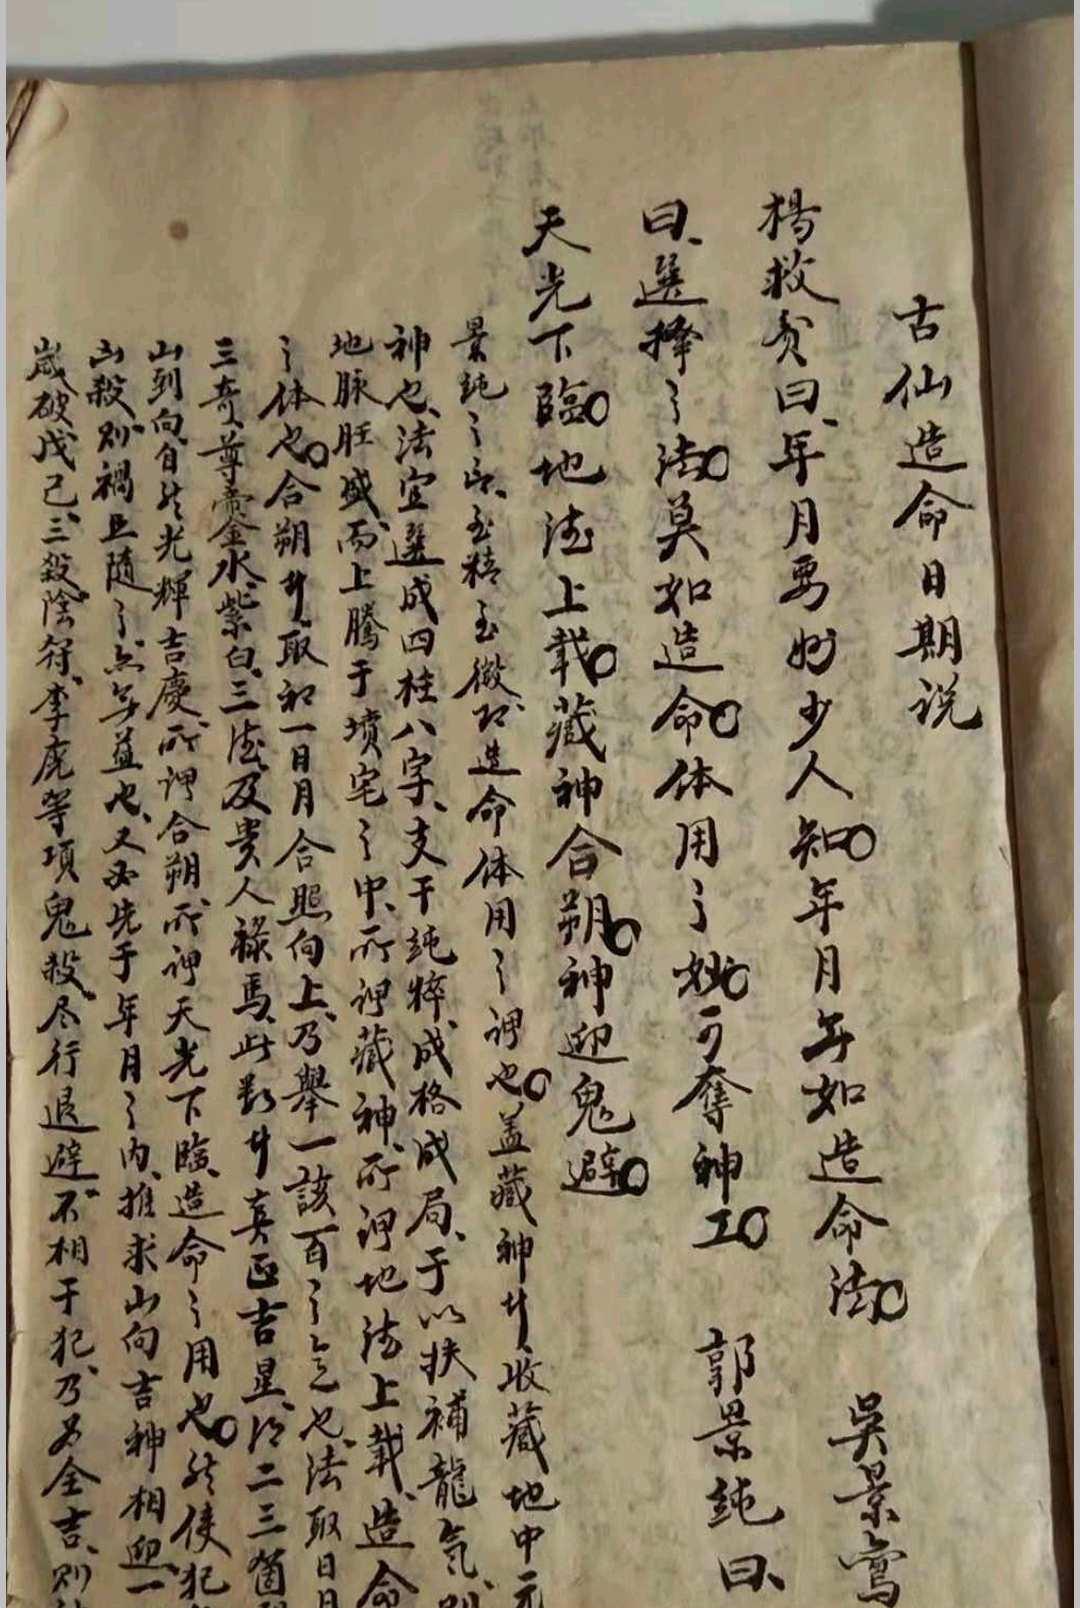 古仙造命日期说
楊救贫曰、年月要妙少人知年月无如造命法 吳景鸾
曰、選擇之法莫如造命体用之妙可奪神工 郭景純曰、
天光下臨地德上载藏神合朔神迎鬼避
景純之言、至精至微、即造命体用之謂也盖藏神者收藏地中元
神也、法宜選成四柱八字、支干純粹、成格成局、于以扶補龍氣、則
地脉旺盛、而上騰于墳宅之中、所謂藏神、所謂地德上载、造命
之体也合朔者取初一日月合照向上、乃舉一該百之意也、法取日月
三奇、尊帝、金水、紫白、三德、及贵人禄馬、此数者真正吉星、得二三箇
山到向、自然光輝吉慶、所謂合朔、所謂天光下臨、造命之用也然使犯
山殺、則禍且隨之、亦无益也、又必先于年月之内、推求山向吉神相迎、一
歲破戊己、三殺、陰符、李虎等項鬼殺、尽行退避、不相干犯、乃为全吉、则